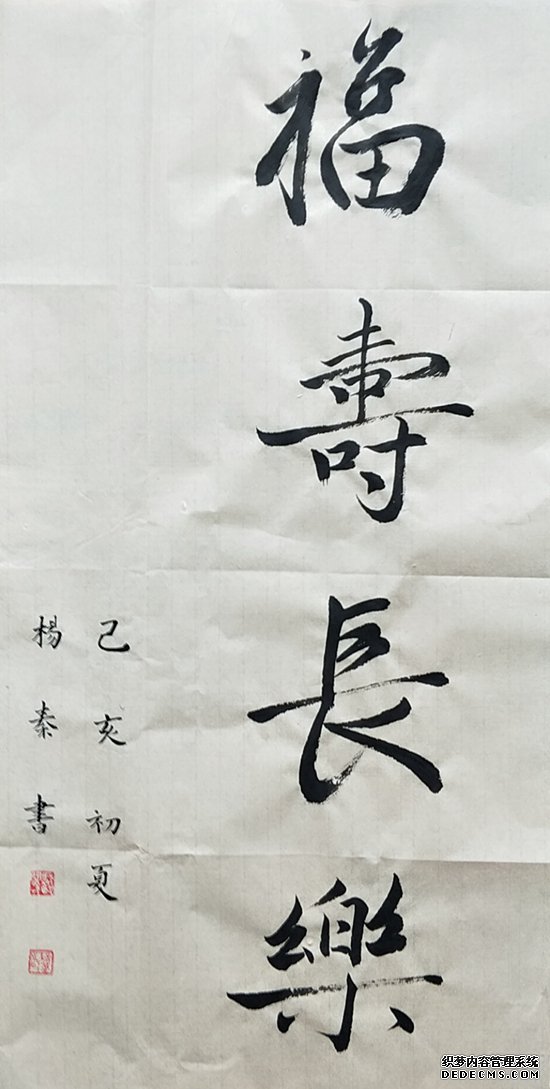 福壽長樂
己亥初夏
楊秦書
织梦内容管理系统
DEDECMS.COM